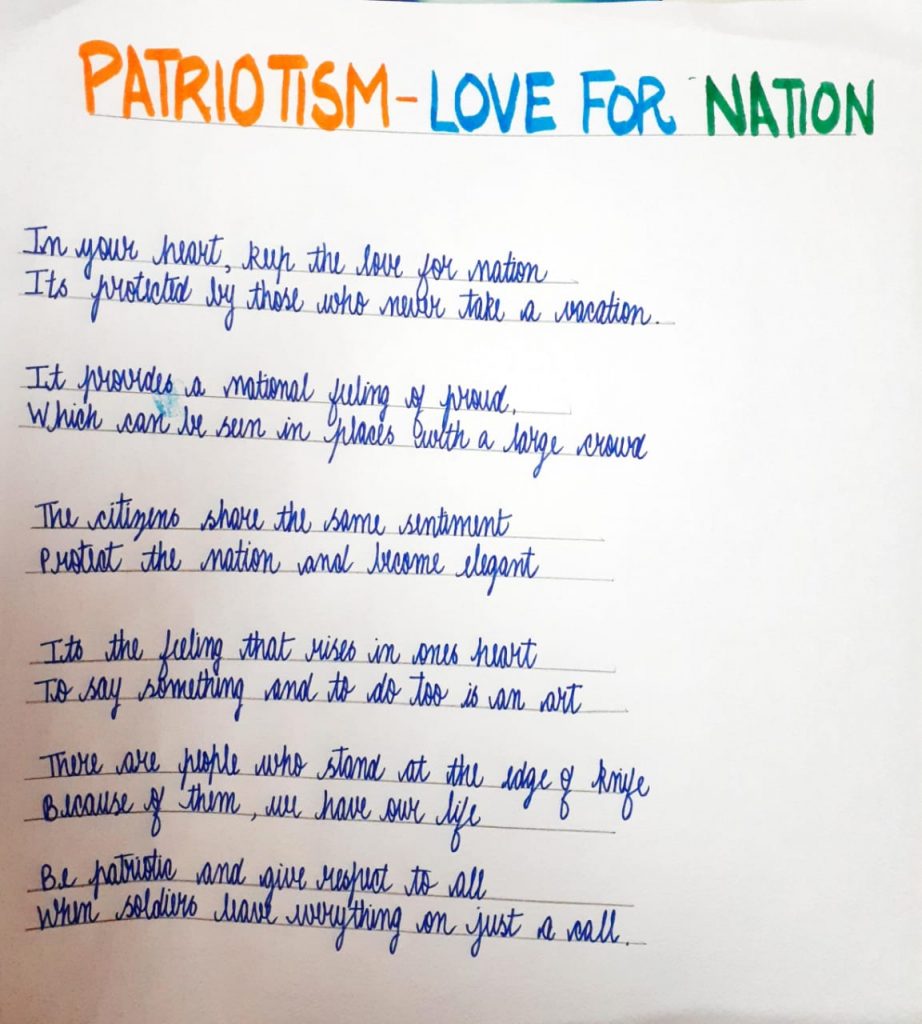 PATRIOTISM - LOVE FOR NATION
In your heart, keep the love for nation
Its protected by those who never take a vacation.
It provides a national feeling of proud,
Which can be seen in places with a large crowd
The citizens share the same sentiment
Protect the nation and become elegant
Its the feeling that rises in ones heart
To say something and to do too is an art
There are people who stand at the edge of knife
Because of them, we have our life
Be patriotic and give respect to all
When soldiers leave everything on just a call.